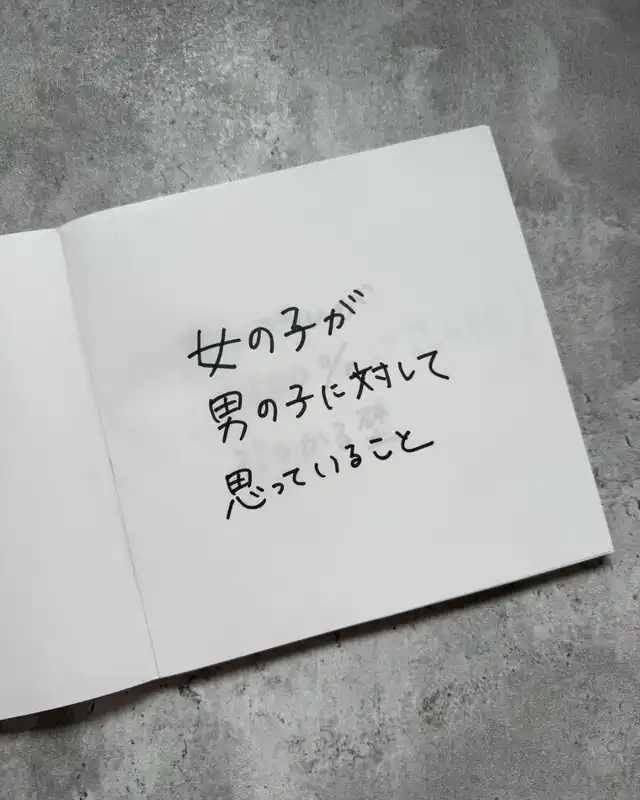 女の子が
男の子に対して
思っていること